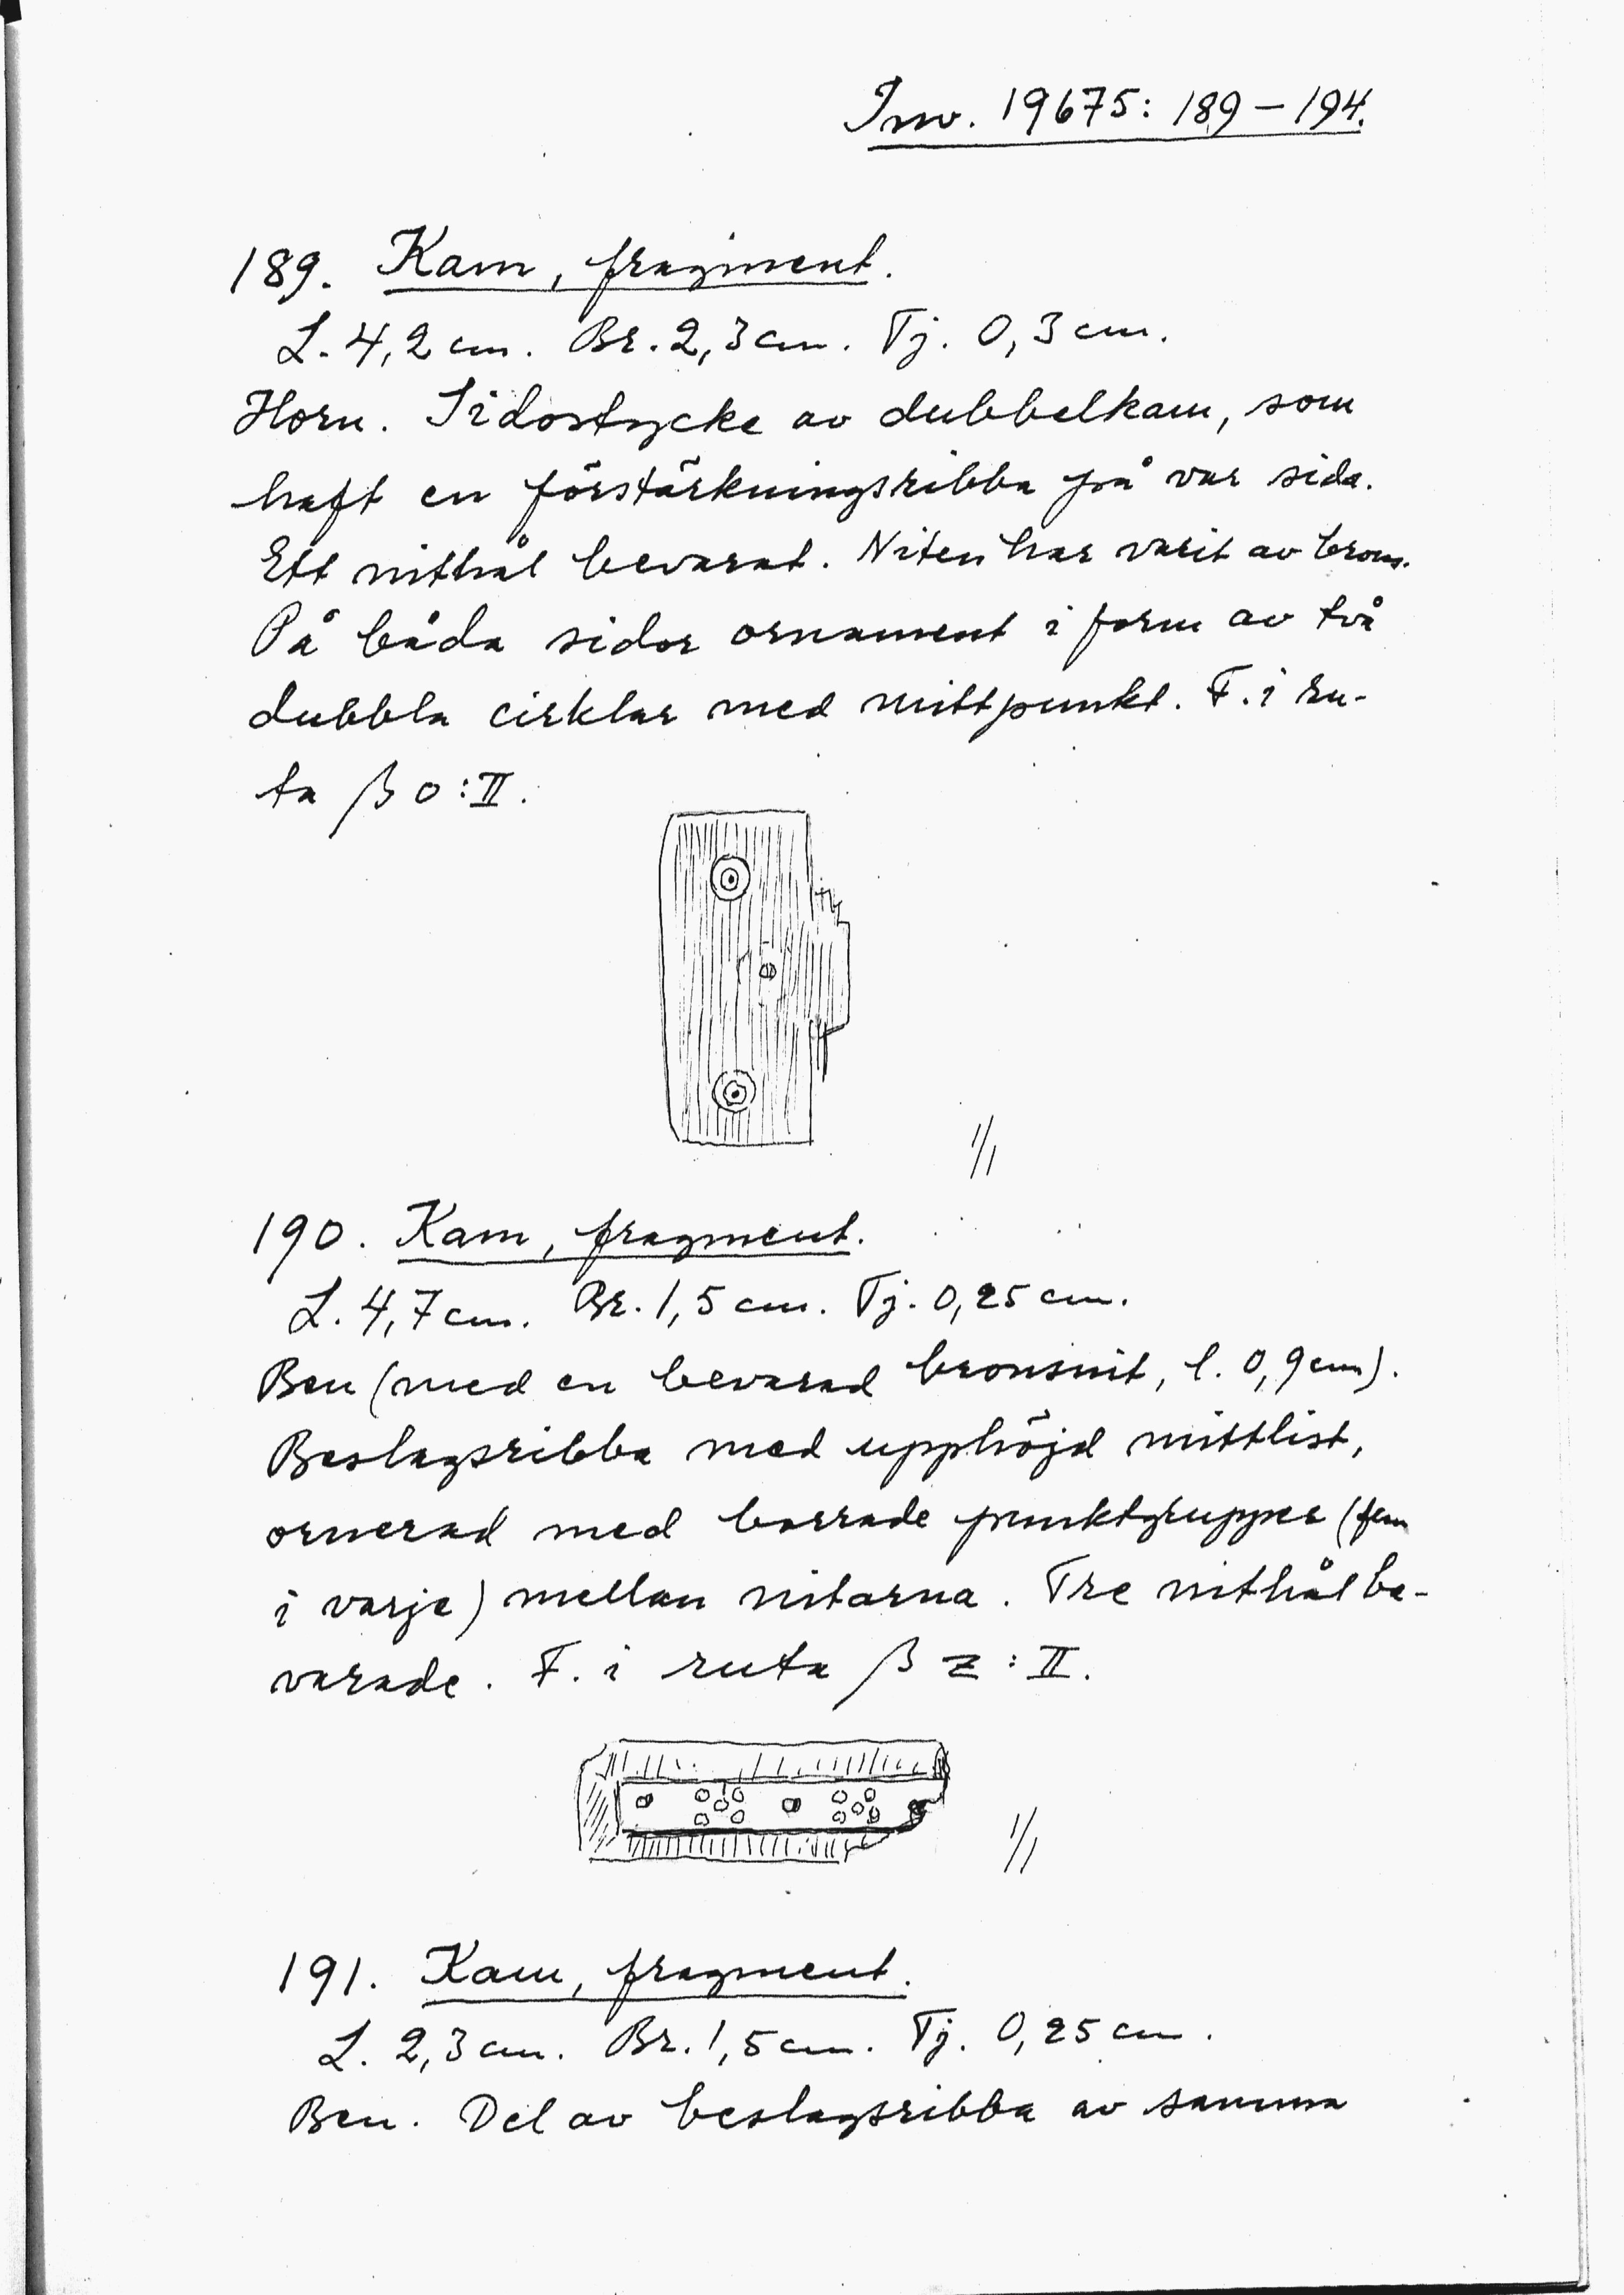 Inv. 19675: 189–194.
189. Kam, fragment.
L. 4,2 cm. Br. 2,3 cm. Tj. 0,3 cm.
Horn. Sidostycke av dubbelkam, som
haft en förstärkningsribba på var sida.
Ett nithål bevarat. Niten har varit av brons.
På båda sidor ornament i form av två
dubbla cirklar med mittpunkt. F. i ru-
ta β o:II.
1/1
190. Kam, fragment.
L. 4,7 cm. Br. 1,5 cm. Tj. 0,25 cm.
Ben (med en bevarad bronsnit, l. 0,9 cm).
Beslagsribba med upphöjd mittlist,
ornerad med borrade punktgrupper (fem
i varje) mellan nitarna. Tre nithål be-
varade. F. i ruta β z:II.
1/1
191. Kam, fragment.
L. 2,3 cm. Br. 1,5 cm. Tj. 0,25 cm.
Ben. Del av beslagsribba av samma